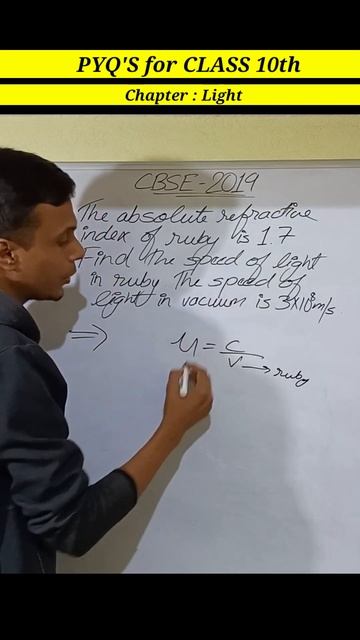 PYQ'S for CLASS 10th
Chapter : Light
CBSE-2019
The absolute refractive
index of ruby is 1.7
Find the speed of light
in ruby The speed of
light in vacuum is 3x10⁸m/s.
⇒ μ = c/v → ruby